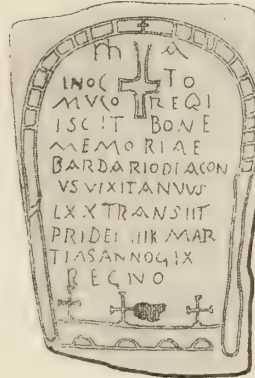 IN OC TO
MVLO REQI
ISCIT BONE
MEMORIAE
BARDARIO DIACON
VS VIXIT ANVVS
LXX TRANSIIT
PRIDEI IIIK MAR
TIAS ANNO GIX
REGNO